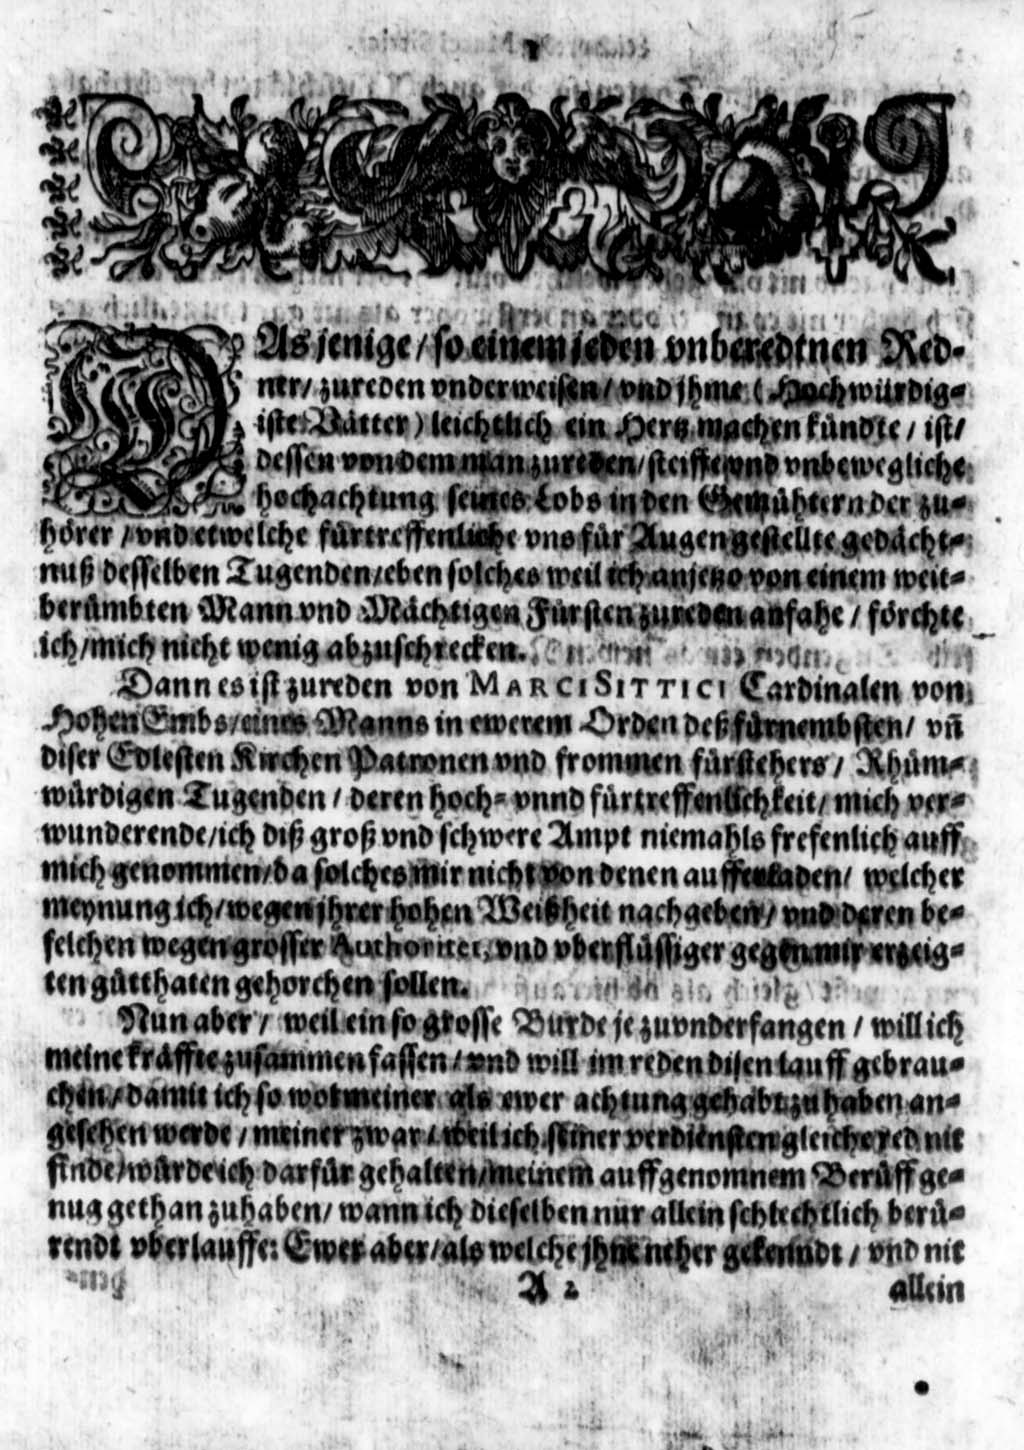 DAs jenige / so einem jeden vnberedtnen Red-
ner / zureden vnderweisen / vnd jhme ( Hochwürdig-
iste Vätter ) leichtlich ein Hertz machen kündte / ist /
dessen von dem man zureden / steiffe vnd vnbewegliche
hochachtung seines Lobs in den Gemühtern der zu-
hörer / vnd etwelche fürtreffenliche vns für Augen gestellte gedächt-
nuß desselben Tugenden / eben solches weil ich anjetzo von einem weit-
berümbten Mann vnd Mächtigen Fürsten zureden anfahe / förchte
ich / mich nicht wenig abzuschrecken.
Dann es ist zureden von MARCI SITTICI Cardinalen von
Hohen Embs / eines Manns in ewerem Orden deß fürnembsten / vñ
diser Edlesten Kirchen Patronen vnd frommen fürstehers / Rhüm-
würdigen Tugenden / deren hoch- vnnd fürtreffenlichkeit / mich ver-
wunderende / ich diß groß vnd schwere Ampt niemahls frefenlich auff
mich genommen / da solches mir nicht von denen aufferladen / welcher
meynung ich / wegen jhrer hohen Weißheit nachgeben / vnd deren be-
felchen wegen grosser Authoritet, vnd vberflüssiger gegen mir erzeig-
ten gütthaten gehorchen sollen.
Nun aber / weil ein so grosse Burde je zuvnderfangen / will ich
meine kräffte zusammen fassen / vnd will im reden disen lauff gebrau-
chen / damit ich so wol meiner als ewer achtung gehabt zu haben an-
gesehen werde / meiner zwar / weil ich seiner verdiensten gleiche red nit
finde / würde ich darfür gehalten / meinem auffgenomnem Berüff ge-
nug gethan zuhaben / wann ich dieselben nur allein schlechtlich berü-
rendt vberlauffe: Ewer aber / als welche jhne neher gekenndt / vnd nit
A 2 allein